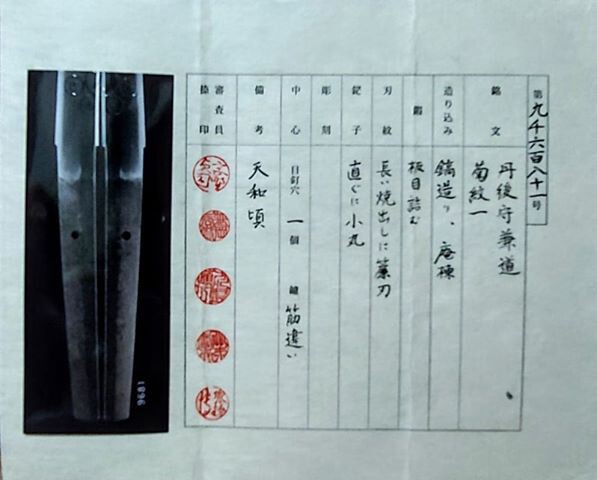 第九千六百八十一号
銘文 丹後守兼道
菊紋一
造り込み 鎬造り、庵棟
鍛 板目詰む
刃紋 長い焼出しに簾刃
鋩子 直ぐに小丸
彫刻
中心 目釘穴 一個 鑢 筋違い
備考 天和頃
審査員
捺印
9681